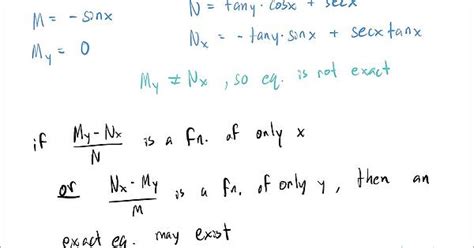 M = - sinx
N = tany · cosx + secx
My = 0
Nx = - tany·sinx + secx tanx
My ≠ Nx , so eq. is not exact
if (My-Nx)/N is a fn. of only x
or (Nx-My)/M is a fn. of only y, then an
exact eq. may exist